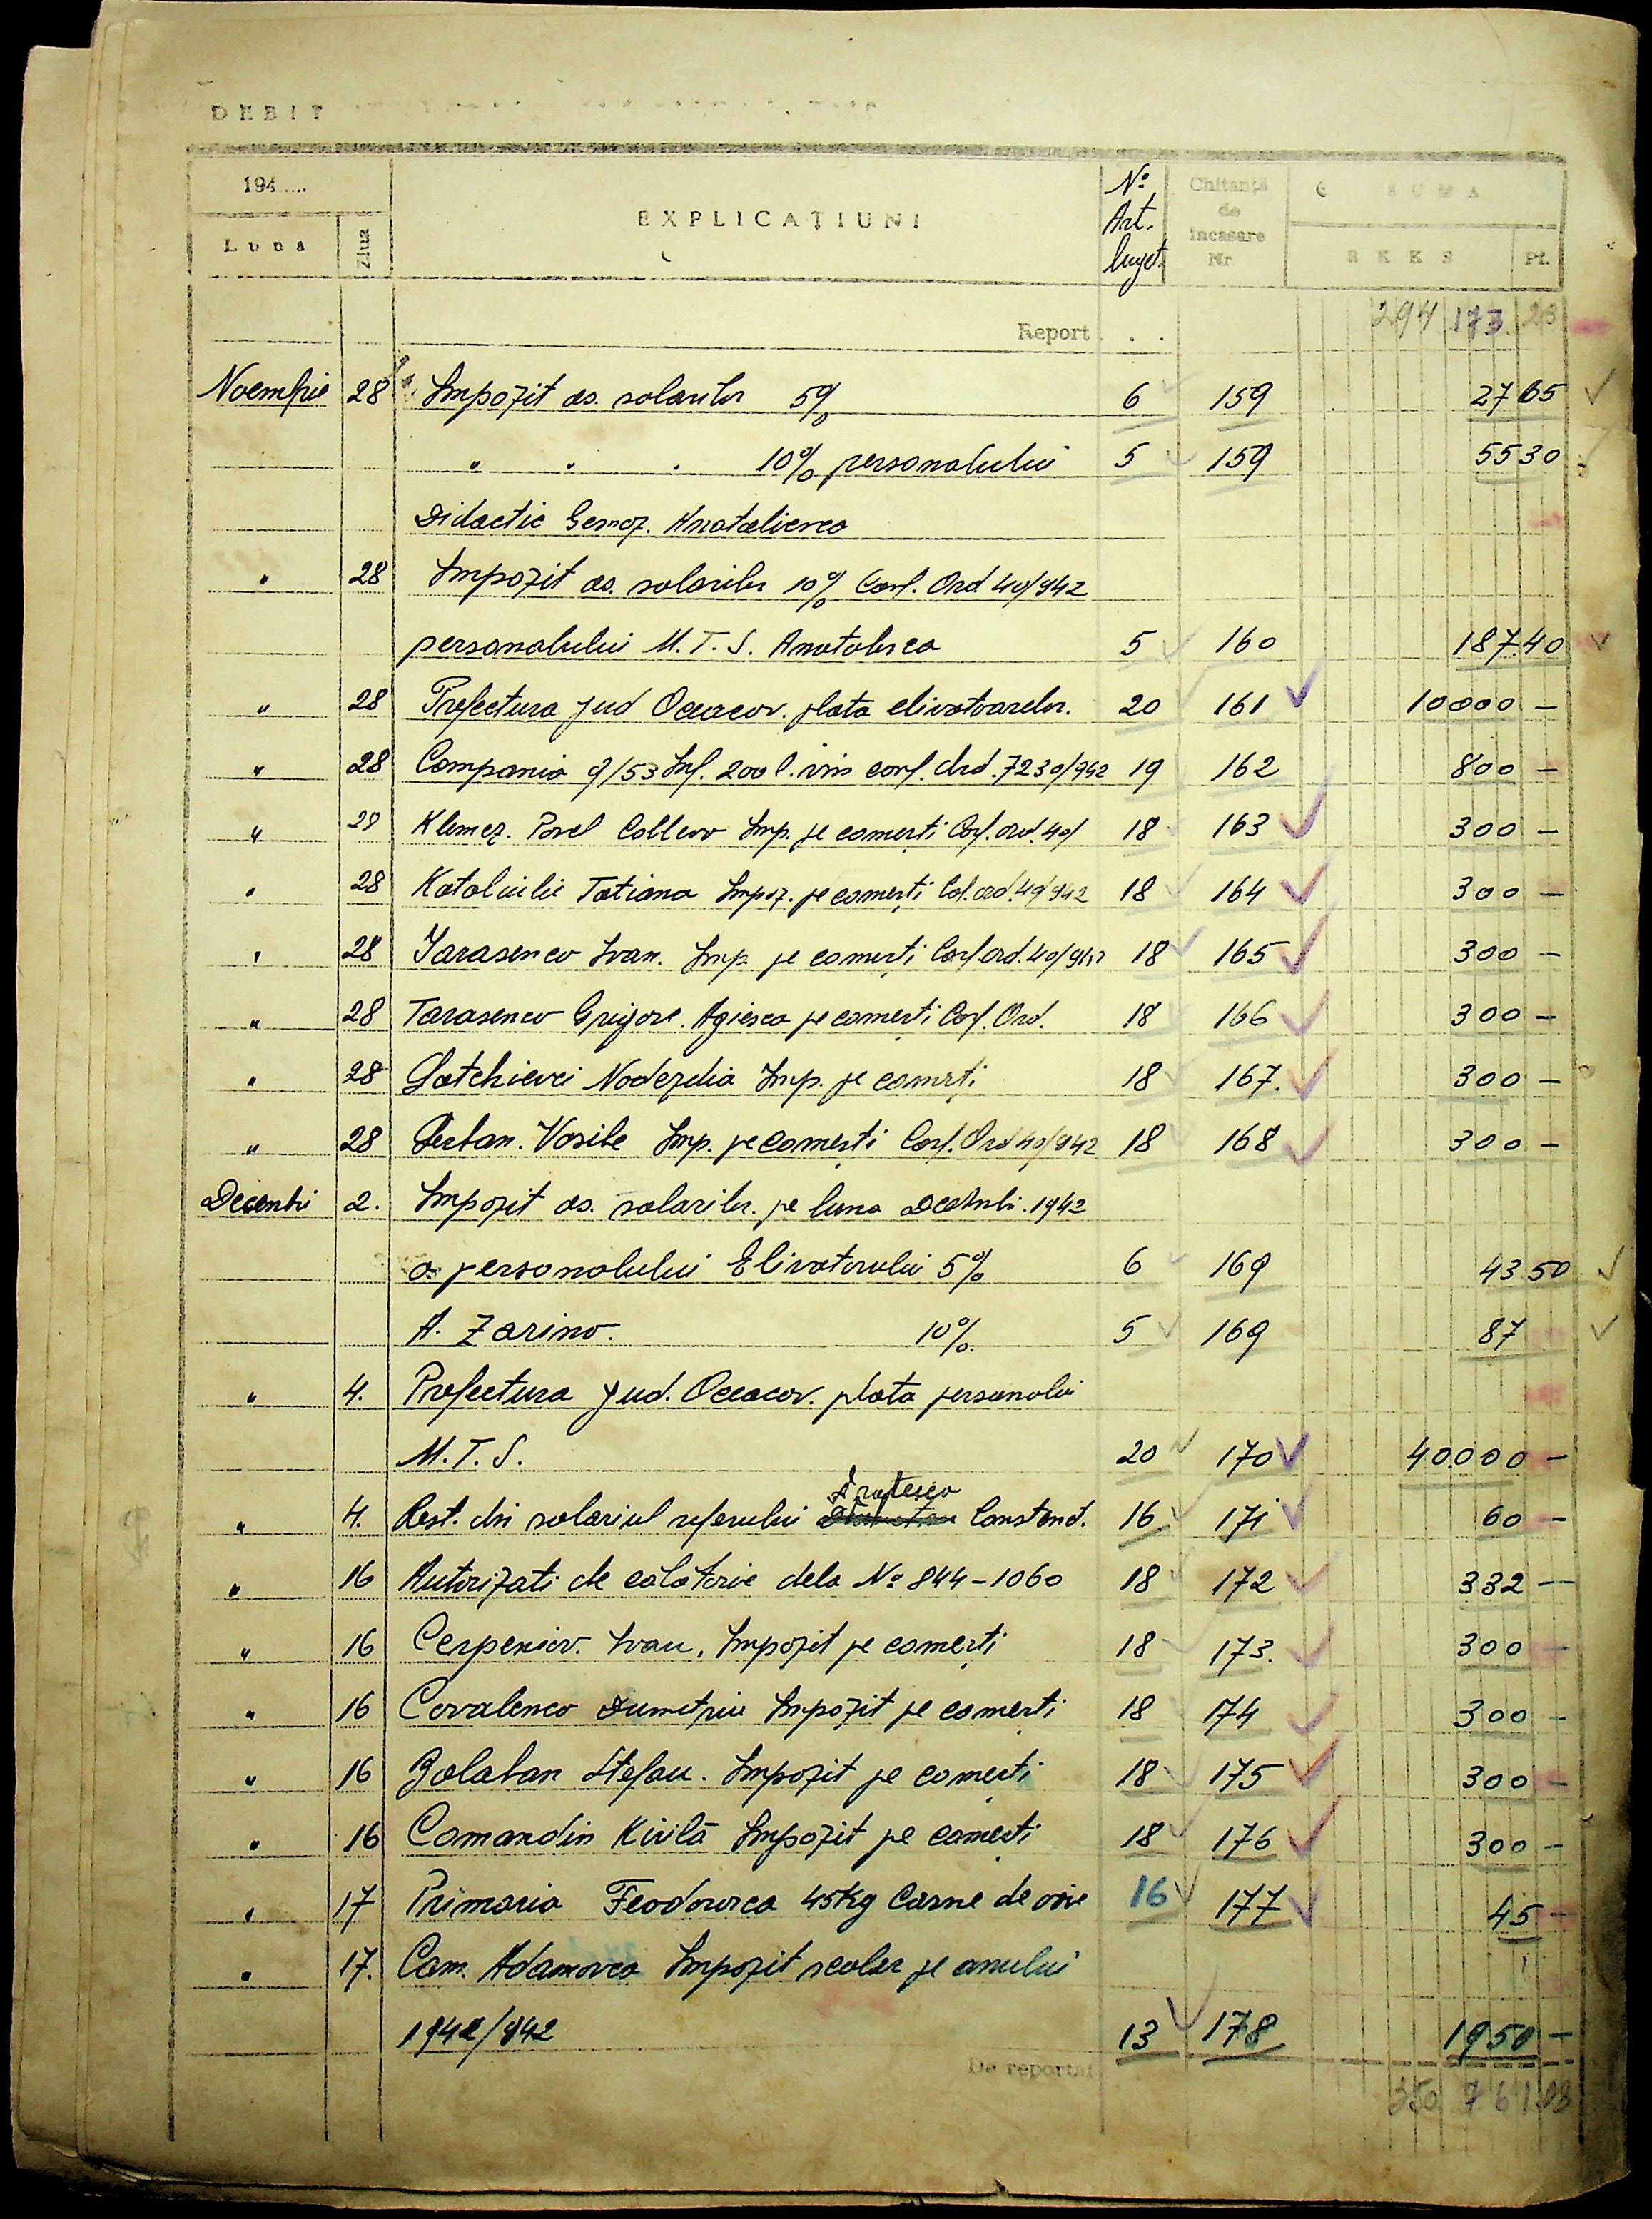 DEBIT
194.....
Luna
Ziua
EXPLICAȚIUNI
No Art. buget.
Chitanță de încasare Nr
SUMA
RKKS
Pf.
Report . . 294 173. 23
Noembrie 28 Impozit as. salariilor 5% 6 159 27 65
" " " 10% personalului 5 159 55 30
Didactic Semoz. Anatolievca
" 28 Impozit as. salariilor 10% Conf. Ord 40/942
personalului M.T.S. Anatolievca 5 160 187 40
" 28 Prefectura Jud Oceacov. plata elivatoarelor. 20 161 10000 -
" 28 Compania 9/53 Inf. 200 l. vin conf. Ord. 7230/942 19 162 800 -
" 29 Klemez. Pavel Imp. pe comerți Conf. ord. 40/ 18 163 300 -
" 28 Tatiana Impoz. pe comerți Cof. ord. 40/942 18 164 300 -
" 28 Tarasenco Ivan. Imp pe comerți Conf ord. 40/942 18 165 300 -
" 28 Tarasenco Grigore. Agiesca pe comerți Conf. Ord. 18 166 300 -
" 28 Nadezdia Imp. pe comerți 18 167. 300 -
" 28 Serban. Vasile Imp. pe comerți Conf. Ord 40/942 18 168 300 -
Decembri 2. Impozit as. salarilor. pe luna Decembri. 1942
a personalului Elivatorului 5% 6 169 43 50
A. Zarino. 10%. 5 169 87
" 4. Prefectura Jud. Oceacov. plata personalui
M.T.S. 20 170 40000 -
" 4. Rest. din salariul referului Constand. 16 171 60 -
" 16 Autorizati de calatorie dela No 844-1060 18 172 332 -
" 16 Cerpeniov. Ivan, Impozit pe comerți 18 173. 300 -
" 16 Covalenco Dumetriu Impozit pe comerți 18 174 300 -
" 16 Balaban Stefan. Impozit pe comerți 18 175 300 -
" 16 Comandin Kirilă Impozit pe comerți 18 176 300 -
" 17 Primaria Feodorvca 45 Kg Carne de oaie 16 177 45 -
" 17. Com. Adamovca Impozit scolar pe anului
1942/942 13 178 1950 -
De reportat 350 764 08